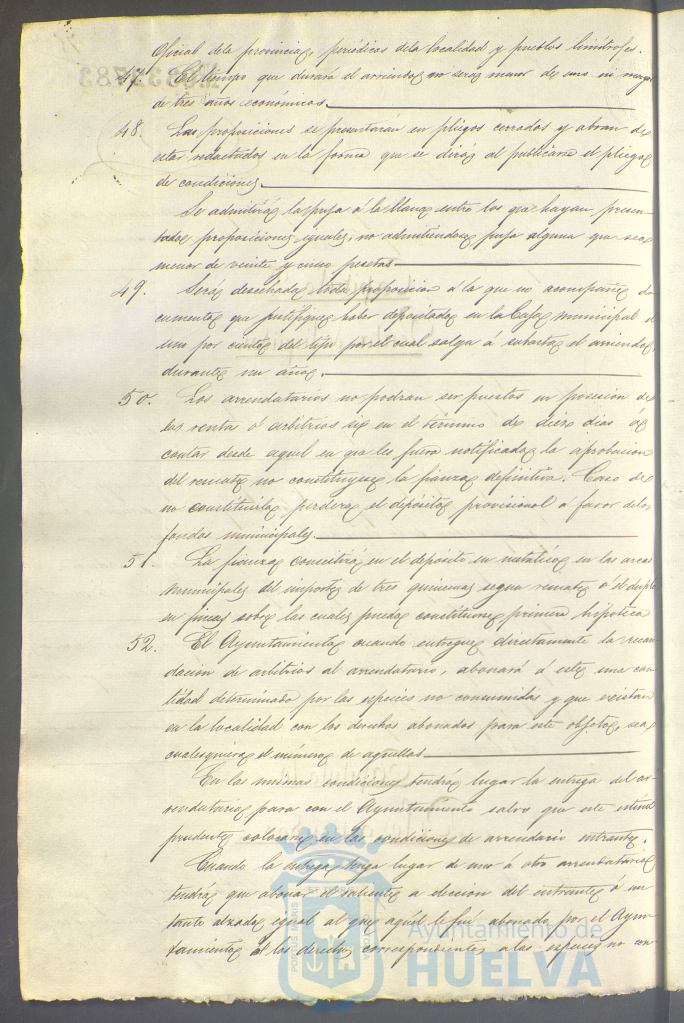 Oficial dela provincia, periódicos dela localidad y pueblos limítrofes.
47. El tiempo que durará el arriendo no será menor de uno ni mayor
de tres años económicos.
48. Las proposiciones se presentarán en pliegos cerrados y abran de
estar redactados en la forma que se dirá al publicarse el pliego
de condiciones.
Se admitirá la puja á la llana entre los que hayan presen-
tado proposiciones iguales, no admitiéndose puja alguna que sea
menor de veinte y cinco pesetas
49. Será desechada toda proposicion á la que no acompañe do
cumento que justifique haber depositado en la Caja municipal el
uno por ciento del tipo por el cual salga á subasta el arriendo,
durante un año.
50. Los arrendatarios no podran ser puestos en posesion de
las rentas ó arbitrios si en el término de diez dias á
contar desde aquel en que les fuera notificada la aprobacion
del remate no constituyese la fianza definitiva. Caso de
no constituirla perderá el depósito provisional á favor delos
fondos municipales.
5 . La fianza consistirá en el depósito en metálico en las arcas
municipales del importe de tres quincenas segun remate ó el duplo
en fincas sobre las cuales pueda constituirse primera hipoteca
52. El Ayuntamiento cuando entregue directamente la recau
dacion de arbitrios al arrendatario, abonará á este una can
tidad determinada por las especies no consumidas y que existan
en la localidad con los derechos abonados para este objeto, sea
cualesquiera el número de aquellas
En las mismas condiciones tendrá lugar la entrega del ar-
rendatario para con el Ayuntamiento salvo que este
prudente colocarse en las condiciones de arrendatario entrante.
Cuando la entrega tenga lugar de uno á otro arrendatario
tendrá que abonar el saliente á eleccion del entrante ó un
tanto alzado igual al que aquél le fué abonado por el Ayun
tamiento ó los derechos correspondientes a las especies no con
Ayuntamiento de
HUELVA